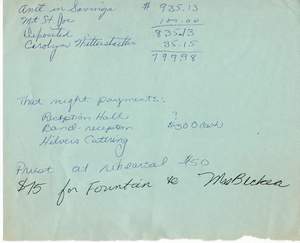 Amt in Savings $ 935.13
Mt St. Joe 100.00
Deposited 835.13
Carolyn 35.15
799.98
That night payments:
Reception Hall ?
Band - reception
Hilvers Catering
Priest at rehearsal $50
$75 for Fountain to Mrs Becker